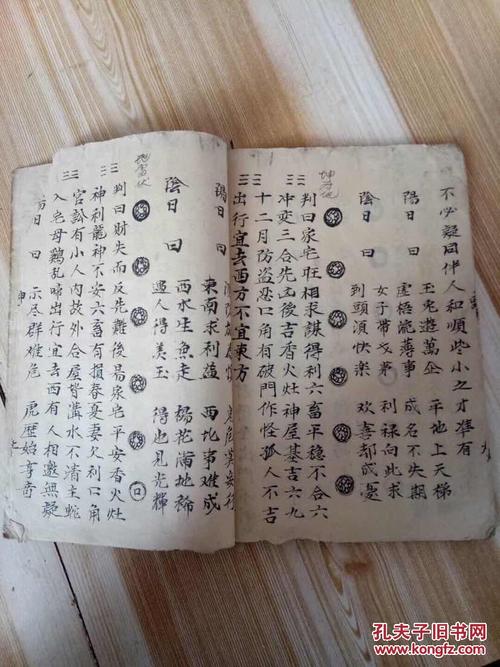 不必疑同伴人和順些小之才準有
陽日曰
玉兔遊萬仙 平地上天梯
虛語能薄事 成名不失期
陰日曰
女子帶文第 利祿向此求
到頭湏快樂 欢喜却成憂
判曰家宅旺相求謀得利六畜平穩不合六
冲变三合先凶後吉香火灶神屋基吉六九
十二月防盗惡口角有破門作怪孤人不吉
出行宜去西方不宜東方
陽日曰
東南求利益 西北事难成
陰日曰
西水生魚走 楊花滿地稀
遇人得美玉 得也見光輝
判曰財失而反先難後易家宅平安香火灶
神利龍神不安六畜有損春妻欠利口角
官訟有小人內故外合屋背溝水不清主蛇
入宅母鷄乱啼出行宜去西有人相邀無疑
日曰
示尽群难危 虎歷始享奇
孔夫子旧书网
www.kongfz.com